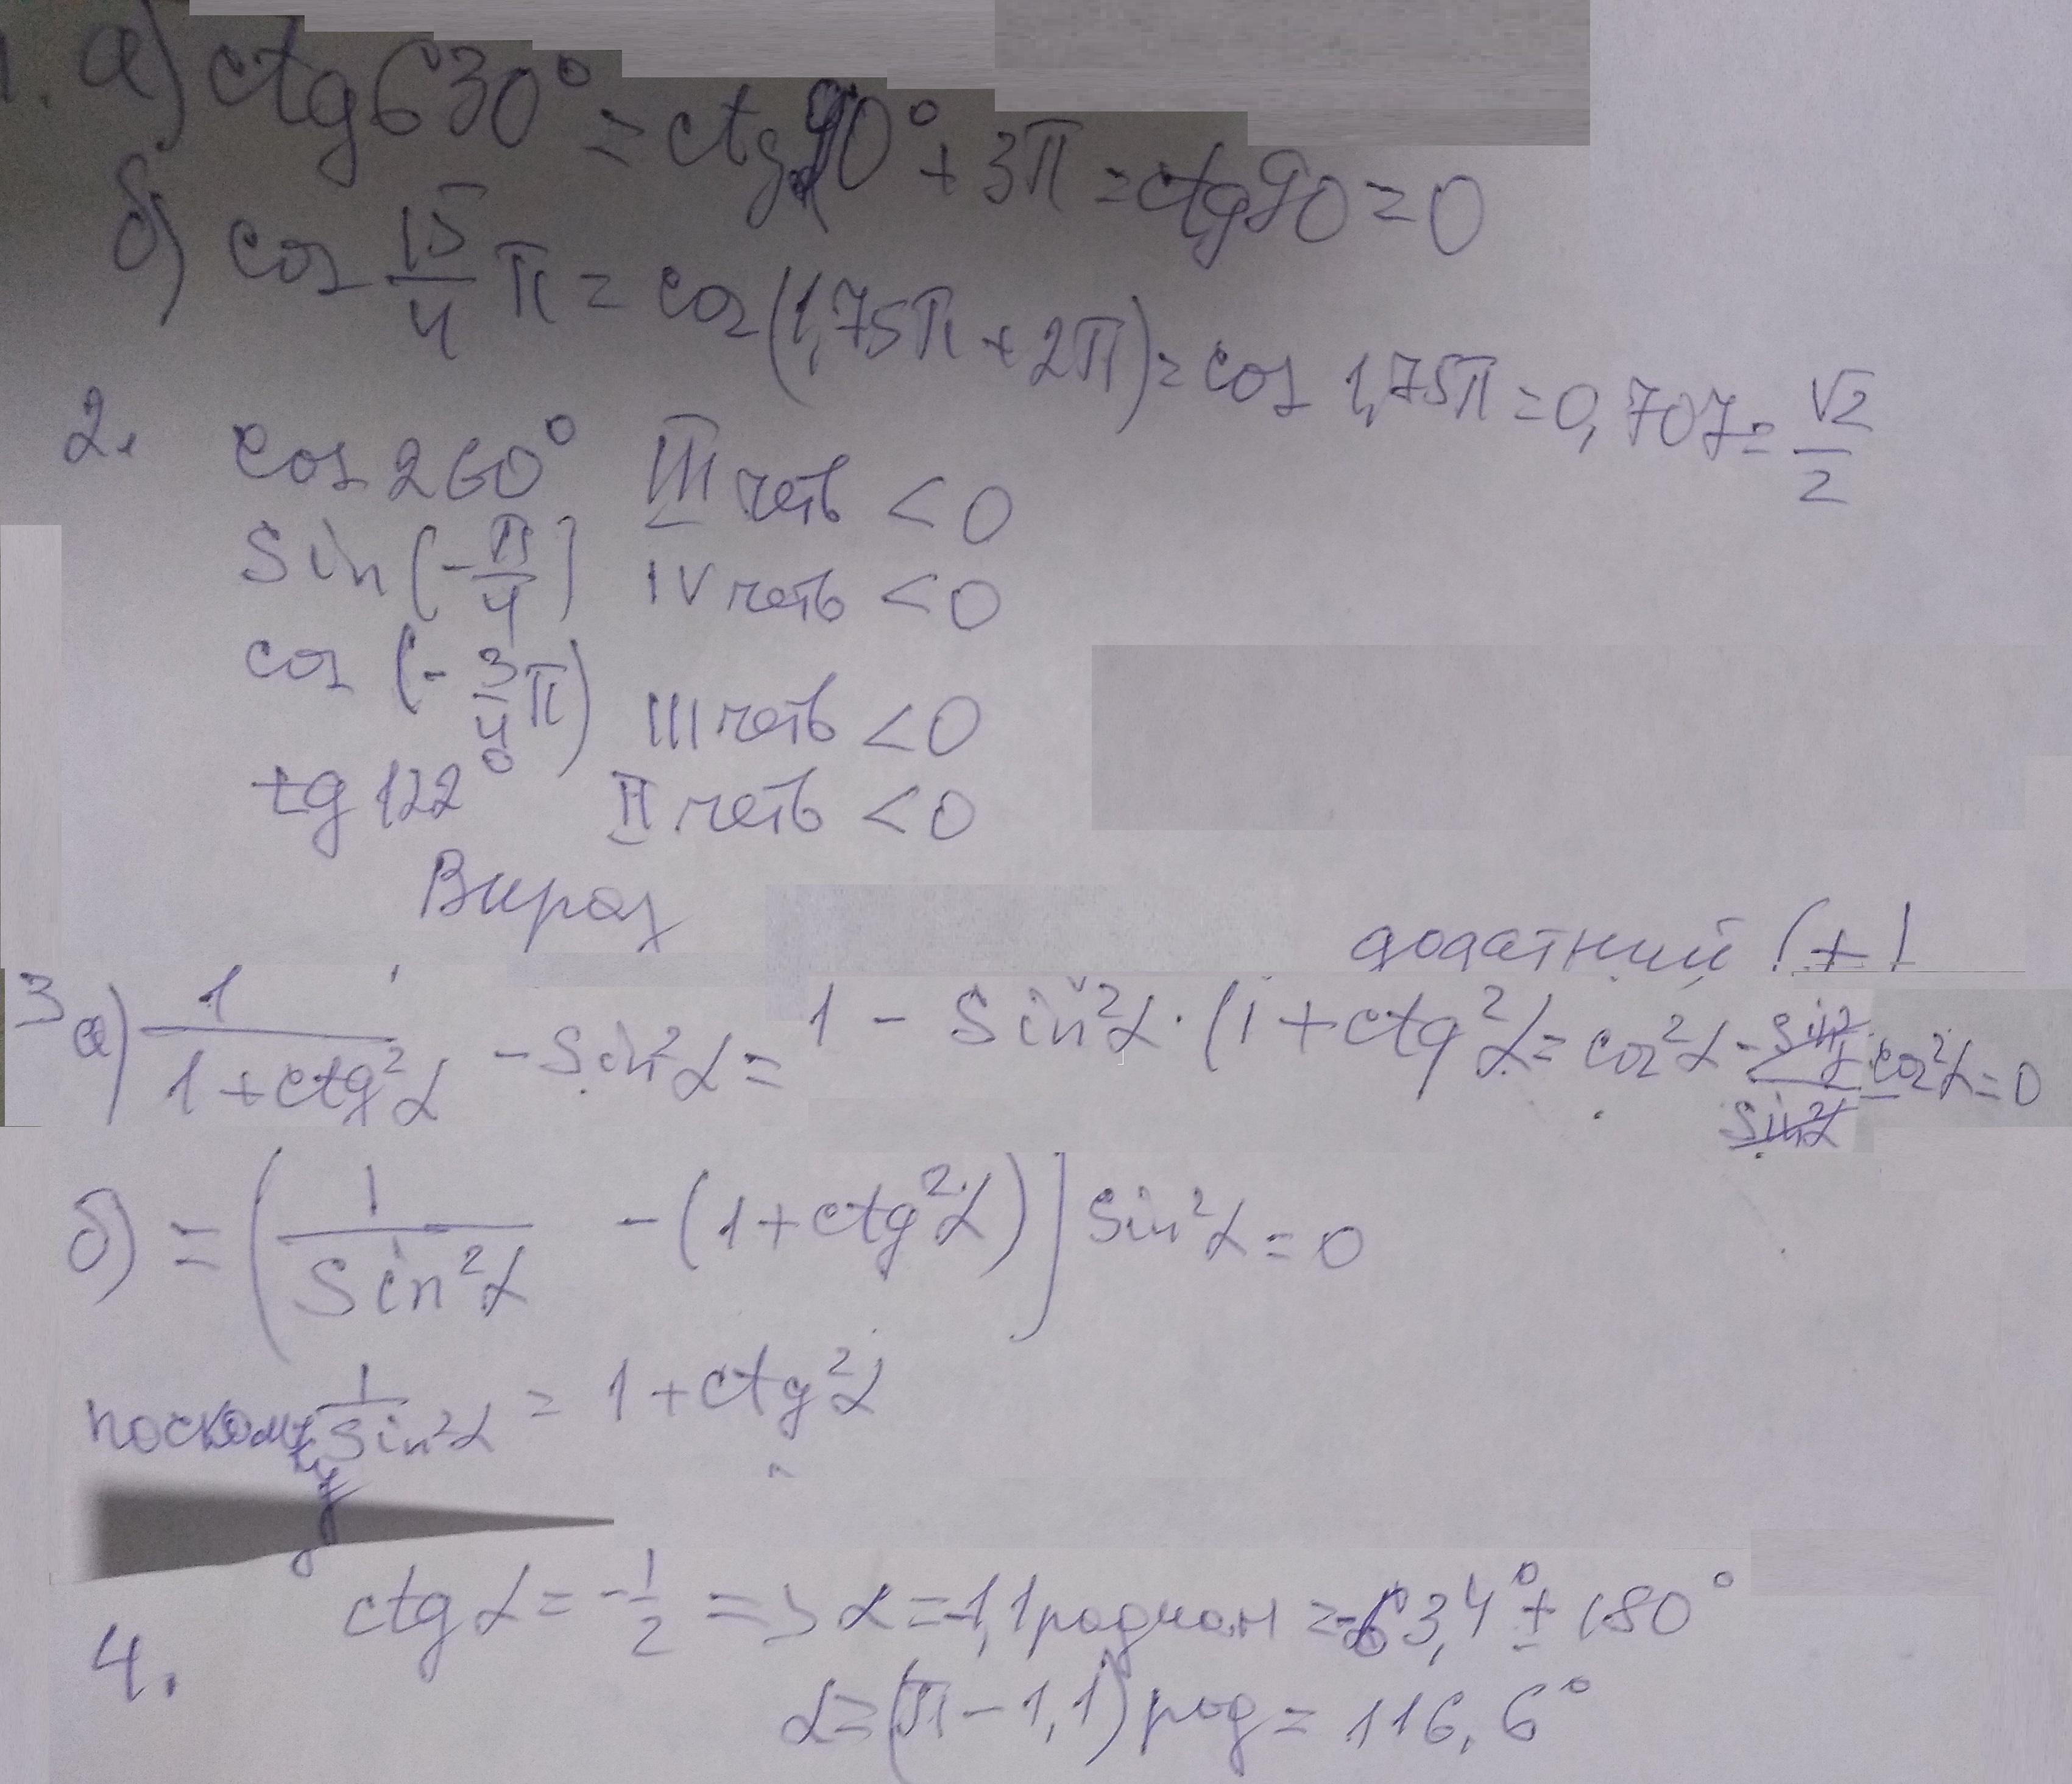 1. а) ctg 630° = ctg 90° + 3π = ctg 90 = 0
б) cos 15/4 π = cos (1,75π + 2π) = cos 1,75π = 0,707 = √2/2
2. cos 260° III четв < 0
sin (-π/4) IV четв < 0
cos (-3/4 π) III четв < 0
tg 122° II четв < 0
Вираз додатний (+)
3 а) 1/(1+ctg²α) - sin²α = 1 - sin²α · (1 + ctg²α = cos²α - sin²α/sin²α cos²α = 0
б) = (1/sin²α - (1+ctg²α)) sin²α = 0
поскольку 1/sin²α = 1 + ctg²α
4. ctg α = -1/2 => α = -1,1 радиан = -63,4° ± 180°
α = (π - 1,1) рад = 116,6°